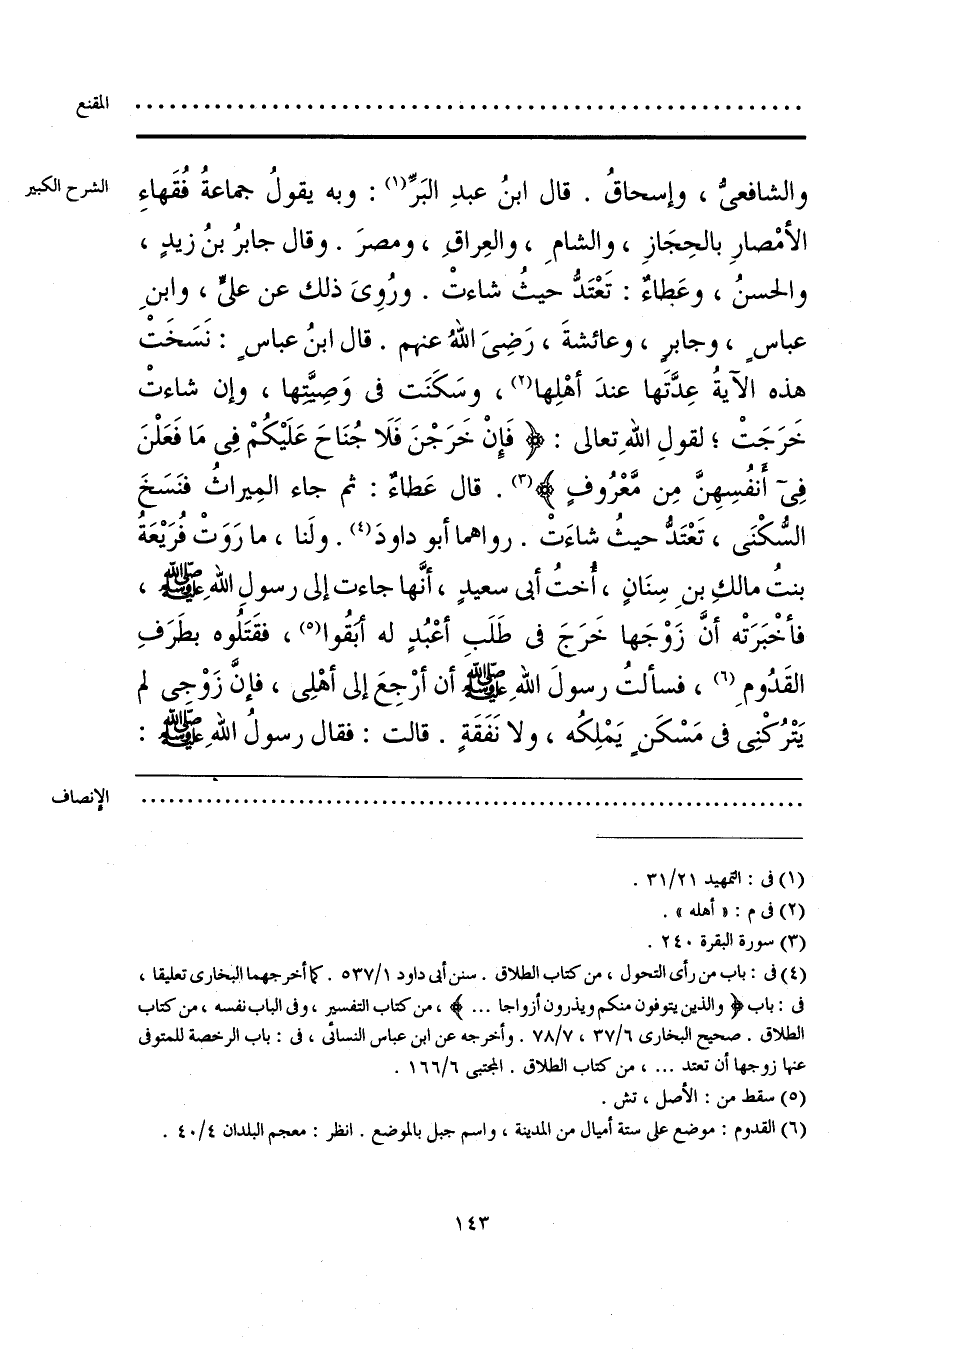 المقنع ..........................................................
الشرح الكبير
والشافعىُّ ، وإسحاقُ . قال ابنُ عبدِ البَرِّ(١) : وبه يقولُ جماعةُ فُقَهاءِ
الأمْصارِ بالحِجَازِ ، والشامِ ، والعِراقِ ، ومصرَ . وقال جابرُ بنُ زيدٍ ،
والحسنُ ، وعَطاءٌ : تَعْتَدُّ حيثُ شاءتْ . ورُوِىَ ذلك عن علىٍّ ، وابنِ
عباسٍ ، وجابرٍ ، وعائشةَ ، رَضِىَ اللهُ عنهم . قال ابنُ عباسٍ : نَسَخَتْ
هذه الآيةُ عِدَّتَها عندَ أهْلِها(٢) ، وسَكَنَت فى وَصِيَّتِها ، وإن شاءتْ
خَرَجَتْ ؛ لقولِ اللهِ تعالى : ﴿ فَإِنْ خَرَجْنَ فَلَا جُنَاحَ عَلَيْكُمْ فِى مَا فَعَلْنَ
فِىٓ أَنفُسِهِنَّ مِن مَّعْرُوفٍ ﴾(٣) . قال عَطاءٌ : ثم جاء المِيراثُ فنَسَخَ
السُّكْنَى ، تَعْتَدُّ حيثُ شاءَتْ . رواهما أبو داودَ(٤) . ولَنا ، ما رَوَتْ فُرَيْعَةُ
بنتُ مالكِ بنِ سِنَانٍ ، أُختُ أبى سعيدٍ ، أنَّها جاءت إلى رسولِ اللهِ ﷺ ،
فأخْبَرَتْه أنَّ زَوْجَها خَرَجَ فى طَلَبِ أعْبُدٍ له أبَقُوا(٥) ، فقَتَلُوه بطَرَفِ
القَدُومِ(٦) ، فسألتُ رسولَ اللهِ ﷺ أن أرْجِعَ إلى أهْلِى ، فإنَّ زَوْجِى لم
يَتْرُكْنِى فى مَسْكَنٍ يَمْلِكُه ، ولا نَفَقَةٍ . قالت : فقال رسولُ اللهِ ﷺ :
الإنصاف ..........................................................
(١) فى : التمهيد ٣١/٢١ .
(٢) فى م : « أهله » .
(٣) سورة البقرة ٢٤٠ .
(٤) فى : باب من رأى التحول ، من كتاب الطلاق . سنن أبى داود ٥٣٧/١ . كما أخرجهما البخارى تعليقا ،
فى : باب ﴿ والذين يتوفون منكم ويذرون أزواجا ... ﴾ ، من كتاب التفسير ، وفى الباب نفسه ، من كتاب
الطلاق . صحيح البخارى ٣٧/٦ ، ٧٨/٧ . وأخرجه عن ابن عباس النسائى ، فى : باب الرخصة للمتوفى
عنها زوجها أن تعتد ... ، من كتاب الطلاق . المجتبى ١٦٦/٦ .
(٥) سقط من : الأصل ، تش .
(٦) القدوم : موضع على ستة أميال من المدينة ، واسم جبل بالموضع . انظر : معجم البلدان ٤٠/٤ .
١٤٣